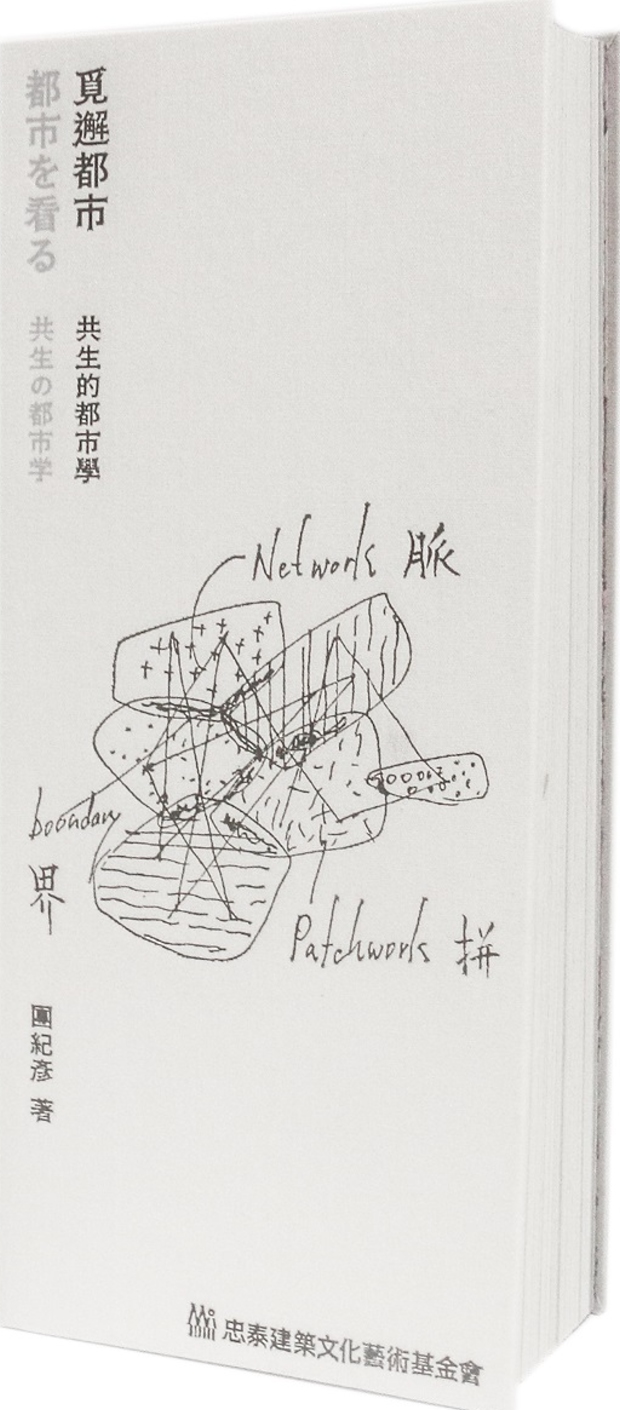 覓邂都市
共生的都市學
都市を看る
共生の都市学
Network 脈
boundary
界
Patchwork 拼
團紀彥 著
忠泰建築文化藝術基金會